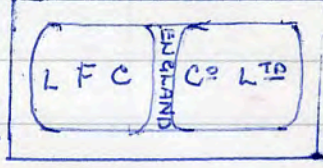 L F C ENGLAND Cº LTD